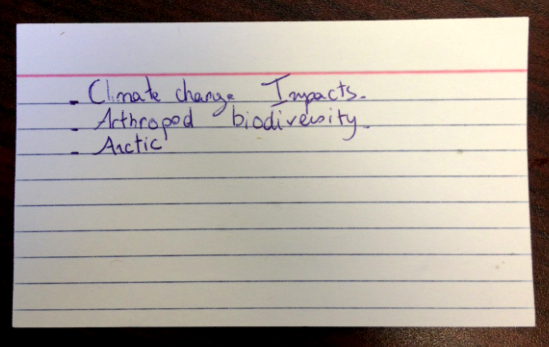 - Climate change Impacts.
- Arthropod biodiversity.
- Arctic